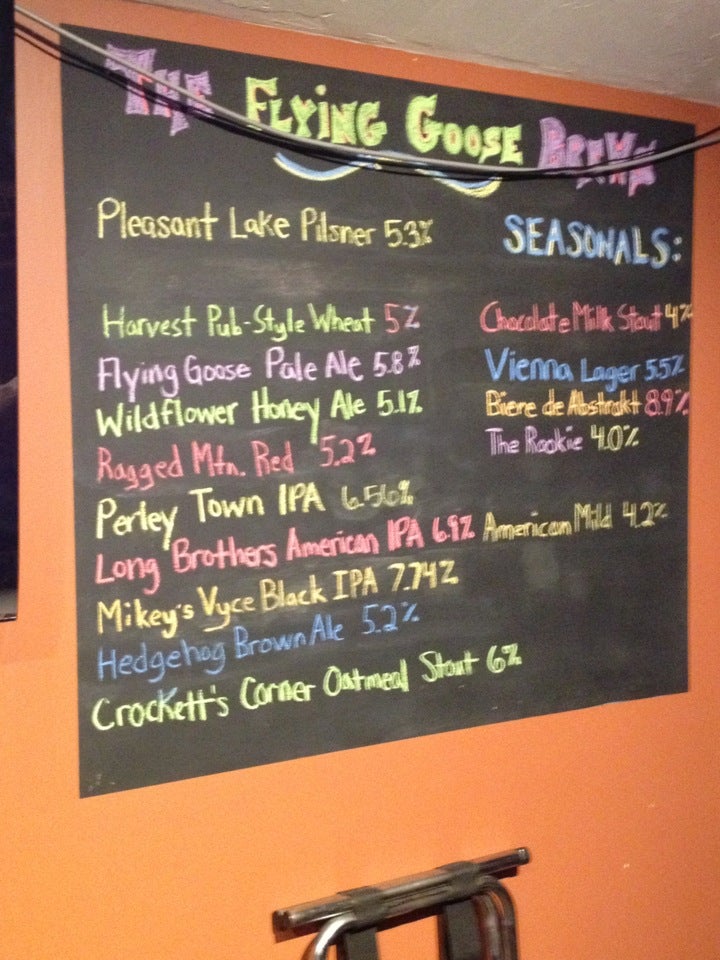 The Flying Goose Brews
Pleasant Lake Pilsner 5.3%
Harvest Pub-Style Wheat 5%
Flying Goose Pale Ale 5.8%
Wildflower Honey Ale 5.1%
Ragged Mtn. Red 5.2%
Perley Town IPA 6.56%
Long Brothers American IPA 6.9%
Mikey's Vyce Black IPA 7.74%
Hedgehog Brown Ale 5.2%
Crockett's Corner Oatmeal Stout 6%
SEASONALS:
Chocolate Milk Stout 4%
Vienna Lager 5.5%
Biere de Abstrakt 8.9%
The Rookie 4.0%
American Mild 4.2%